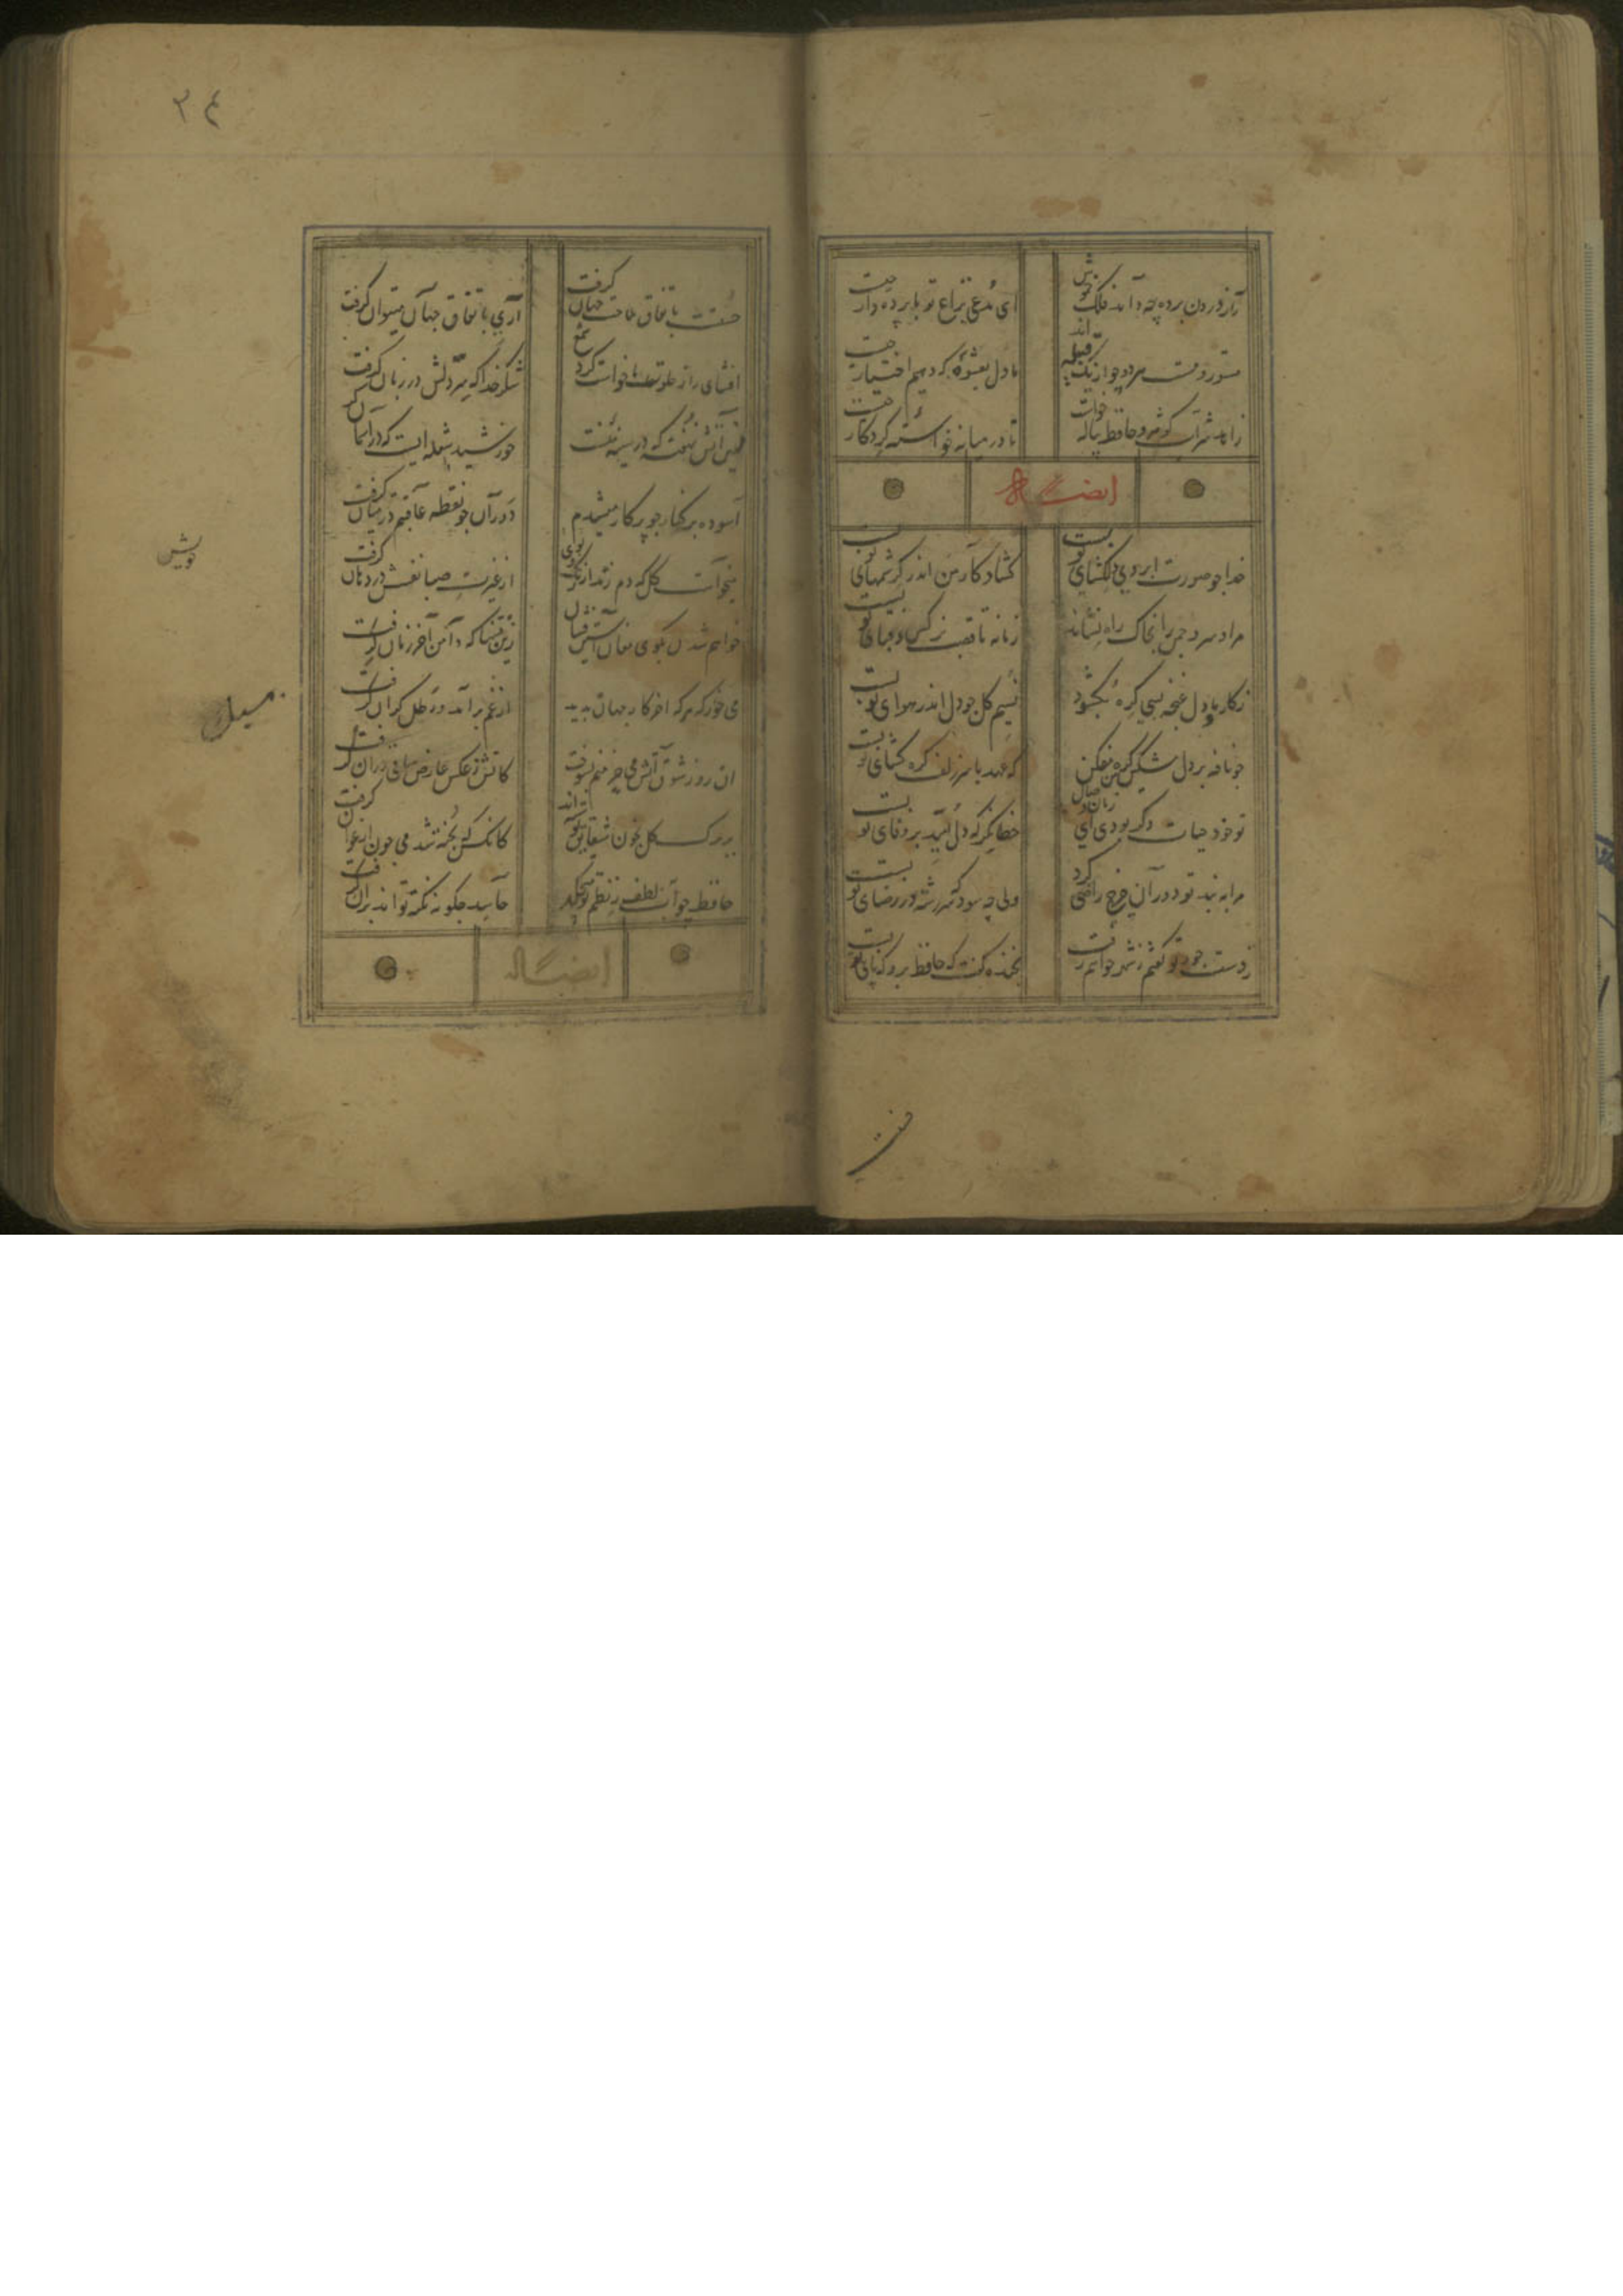 راز درون پرده چه داند فلک خموش
ای مدعی نزاع تو با پرده دار چیست
مستور و مست هر دو چو از یک قبیله اند
ما دل بعشوۀ که دهیم اختیار چیست
زاهد شراب کوثر و حافظ پیاله خواست
تا در میانه خواستۀ کردکار چیست
ایضاً له
خدا چو صورت ابروی دلکشای تو بست
کشاد کار من اندر کرشمهای تو بست
مرا و سرو چمن را بخاک راه نشاند
زمانه تا قصب نرکس و قبای تو بست
ز کار ما و دل غنچه بسی کره بکشود
نسیم کل چو دل اندر هوای تو بست
چو نافه بر دل مسکین من کره مفکن
که عهد با سر زلف کره کشای تو بست
تو خود حیات دکر بودی ای زمان وصال
خطا نکر که دل امید بر وفای تو بست
مرا به بند تو دوران چرخ راضی کرد
ولی چه سود که سررشته در رضای تو بست
ز دست جور تو کفتم ز شهر خواهم رفت
بخنده کفت که حافظ برو که پای تو بست
حسنت
۳۴
حسنت باتفاق ملاحت جهان کرفت
آری باتفاق جهان میتوان کرفت
افشای راز خلوتیان خواست کرد شمع
شکر خدا که سر دلش در زبان کرفت
زین آتش نهفته که در سینه منست
خورشید شعله ایست که در آسمان کرفت
آسوده بر کنار چو پرکار میشدم
دوران چو نقطه عاقبتم در میان کرفت
میخواست کل که دم زند از رنک و بوی
از غیرت صبا نفسش در دهان کرفت
خواهم شدن بکوی مغان آستین فشان
زین فتنها که دامن آخر زمان کرفت
می خور که هر که اخر کار جهان بدید
از غم برآمد و رطل کران کرفت
ان روز شوق آتش می خرمنم بسوخت
کاتش ز عکس عارض ساقی در ان کرفت
بر برک کل بخون شقایق نوشته اند
کانکس که پخته شد می چون ارغوان کرفت
حافظ چو آب لطف ز نظم تو میچکد
حاسد چکونه نکته تواند بران کرفت
ایضاً له